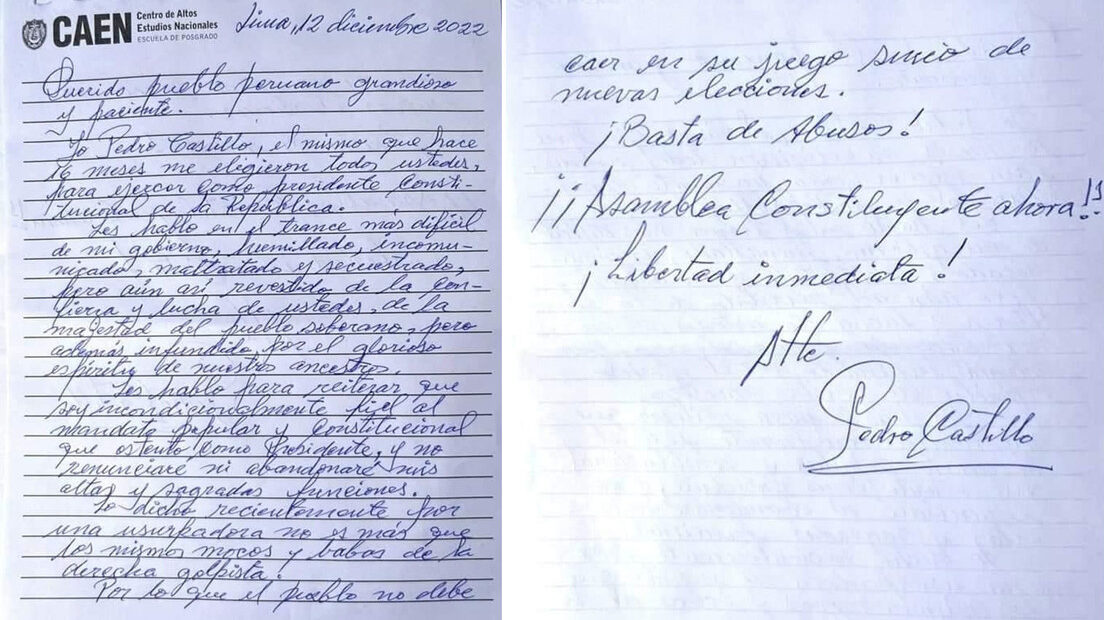 CAEN
Centro de Altos
Estudios Nacionales
ESCUELA DE POSGRADO
Lima, 12 diciembre 2022
Querido pueblo peruano grandioso
y paciente.
Yo Pedro Castillo, el mismo que hace
16 meses me eligieron todos ustedes,
para ejercer como presidente Consti-
tucional de la República.
Les hablo en el trance más difícil
de mi gobierno, humillado, incomu-
nicado, maltratado y secuestrado,
pero aún así revestido de la con-
fianza y lucha de ustedes, de la
majestad del pueblo soberano, pero
además infundido, por el glorioso
espíritu de nuestros ancestros.
Les hablo para reiterar que
soy incondicionalmente fiel al
mandato popular y Constitucional
que ostento como Presidente, y no
renunciaré ni abandonaré mis
altas y sagradas funciones.
Lo dicho recientemente por
una usurpadora no es más que
los mismos mocos y babas de la
derecha golpista.
Por lo que el pueblo no debe
caer en su juego sucio de
nuevas elecciones.
¡Basta de Abusos!
¡¡Asamblea Constituyente ahora!!
¡Libertad inmediata!
Atte.
Pedro Castillo